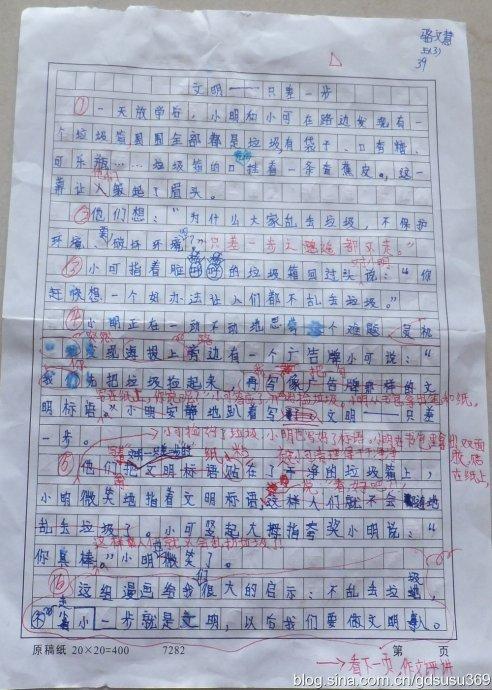 骆文慧
五(3)
39
文明——只差一步
① 一天放学后，小明和小可在路边发现有一
个垃圾箱周围全部都是垃圾有袋子、口香糖、
可乐瓶……垃圾箱的口挂着一条香蕉皮。这一
幕让人皱起了眉头。
②他们想：“为什么大家乱丢垃圾，不保护
环境、破坏环境？只差一步之遥远都不走。”
③小可指着脏的垃圾箱回过头说：“你
赶快想一个好办法让人们都不乱丢垃圾。”
④小明正在一动不动地思考个难题，
发现海报上旁边有一个广告牌小可说：“
我先把垃圾捡起来，再写像广告牌那样的文
明标语。”小明安静地趴着写文明——只差
一步。
小可捡好了垃圾，小明也写好了标语。
⑤他们把文明标语贴在了干净的垃圾箱上，
小明微笑地指着文明标语，这样人们就不会随地
乱丢垃圾了。小可竖起大拇指夸奖小明说：“
你真棒。”小明微笑了。
⑥这组漫画给我们很大的启示：不乱丢垃圾，
走小一步就是文明，以后我们要做文明人。
原稿纸 20×20=400 7282 第 页
→看下一页，作文评讲
blog.sina.com.cn/gdsusu369